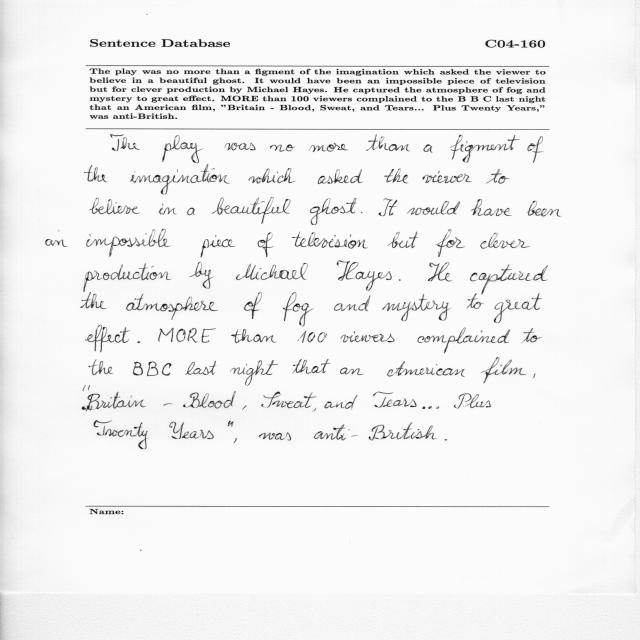 Sentence Database C04-160
The play was no more than a figment of the imagination which asked the viewer to
believe in a beautiful ghost. It would have been an impossible piece of television
but for clever production by Michael Hayes. He captured the atmosphere of fog and
mystery to great effect. MORE than 100 viewers complained to the B B C last night
that an American film, "Britain - Blood, Sweat, and Tears... Plus Twenty Years,"
was anti-British.
The play was no more than a figment of
the imagination which asked the viewer to
believe in a beautiful ghost. It would have been
an impossible piece of television but for clever
production by Michael Hayes. He captured
the atmosphere of fog and mystery to great
effect. MORE than 100 viewers complained to
the BBC last night that an American film,
"Britain - Blood, Sweat, and Tears... Plus
Twenty Years", was anti-British.
Name: